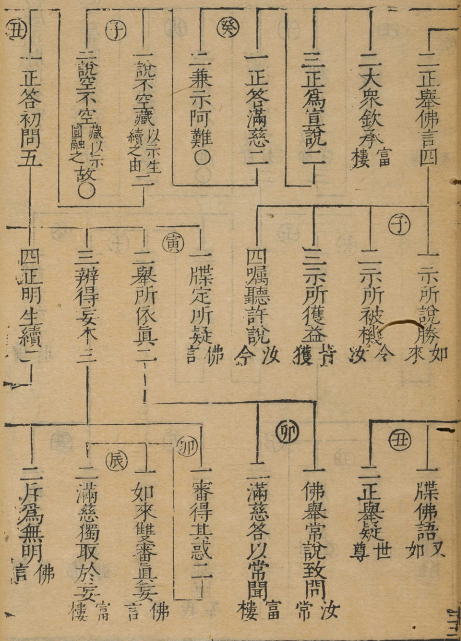 二正舉佛言四
二大衆欽承富樓
三正爲宣說二
癸
一正答滿慈二
二兼示阿難〇
子
一說不空藏以示生續之由二
二說空不空藏以示圓融之故〇
丑
一正答初問五
子
一示所說勝如來
二示所被機今汝
三示所獲益皆獲
四囑聽許說汝今
寅
一牒定所疑佛言
二舉所依眞二
三辨得妄本三
四正明生續二
丑
一牒佛語又如
二正舉疑世尊
卯
一佛舉常說致問汝常
二滿慈答以常聞富樓
卯
一審得其惑二
辰
一如來雙審眞妄佛言
二滿慈獨取於妄富樓
二斥爲無明佛言